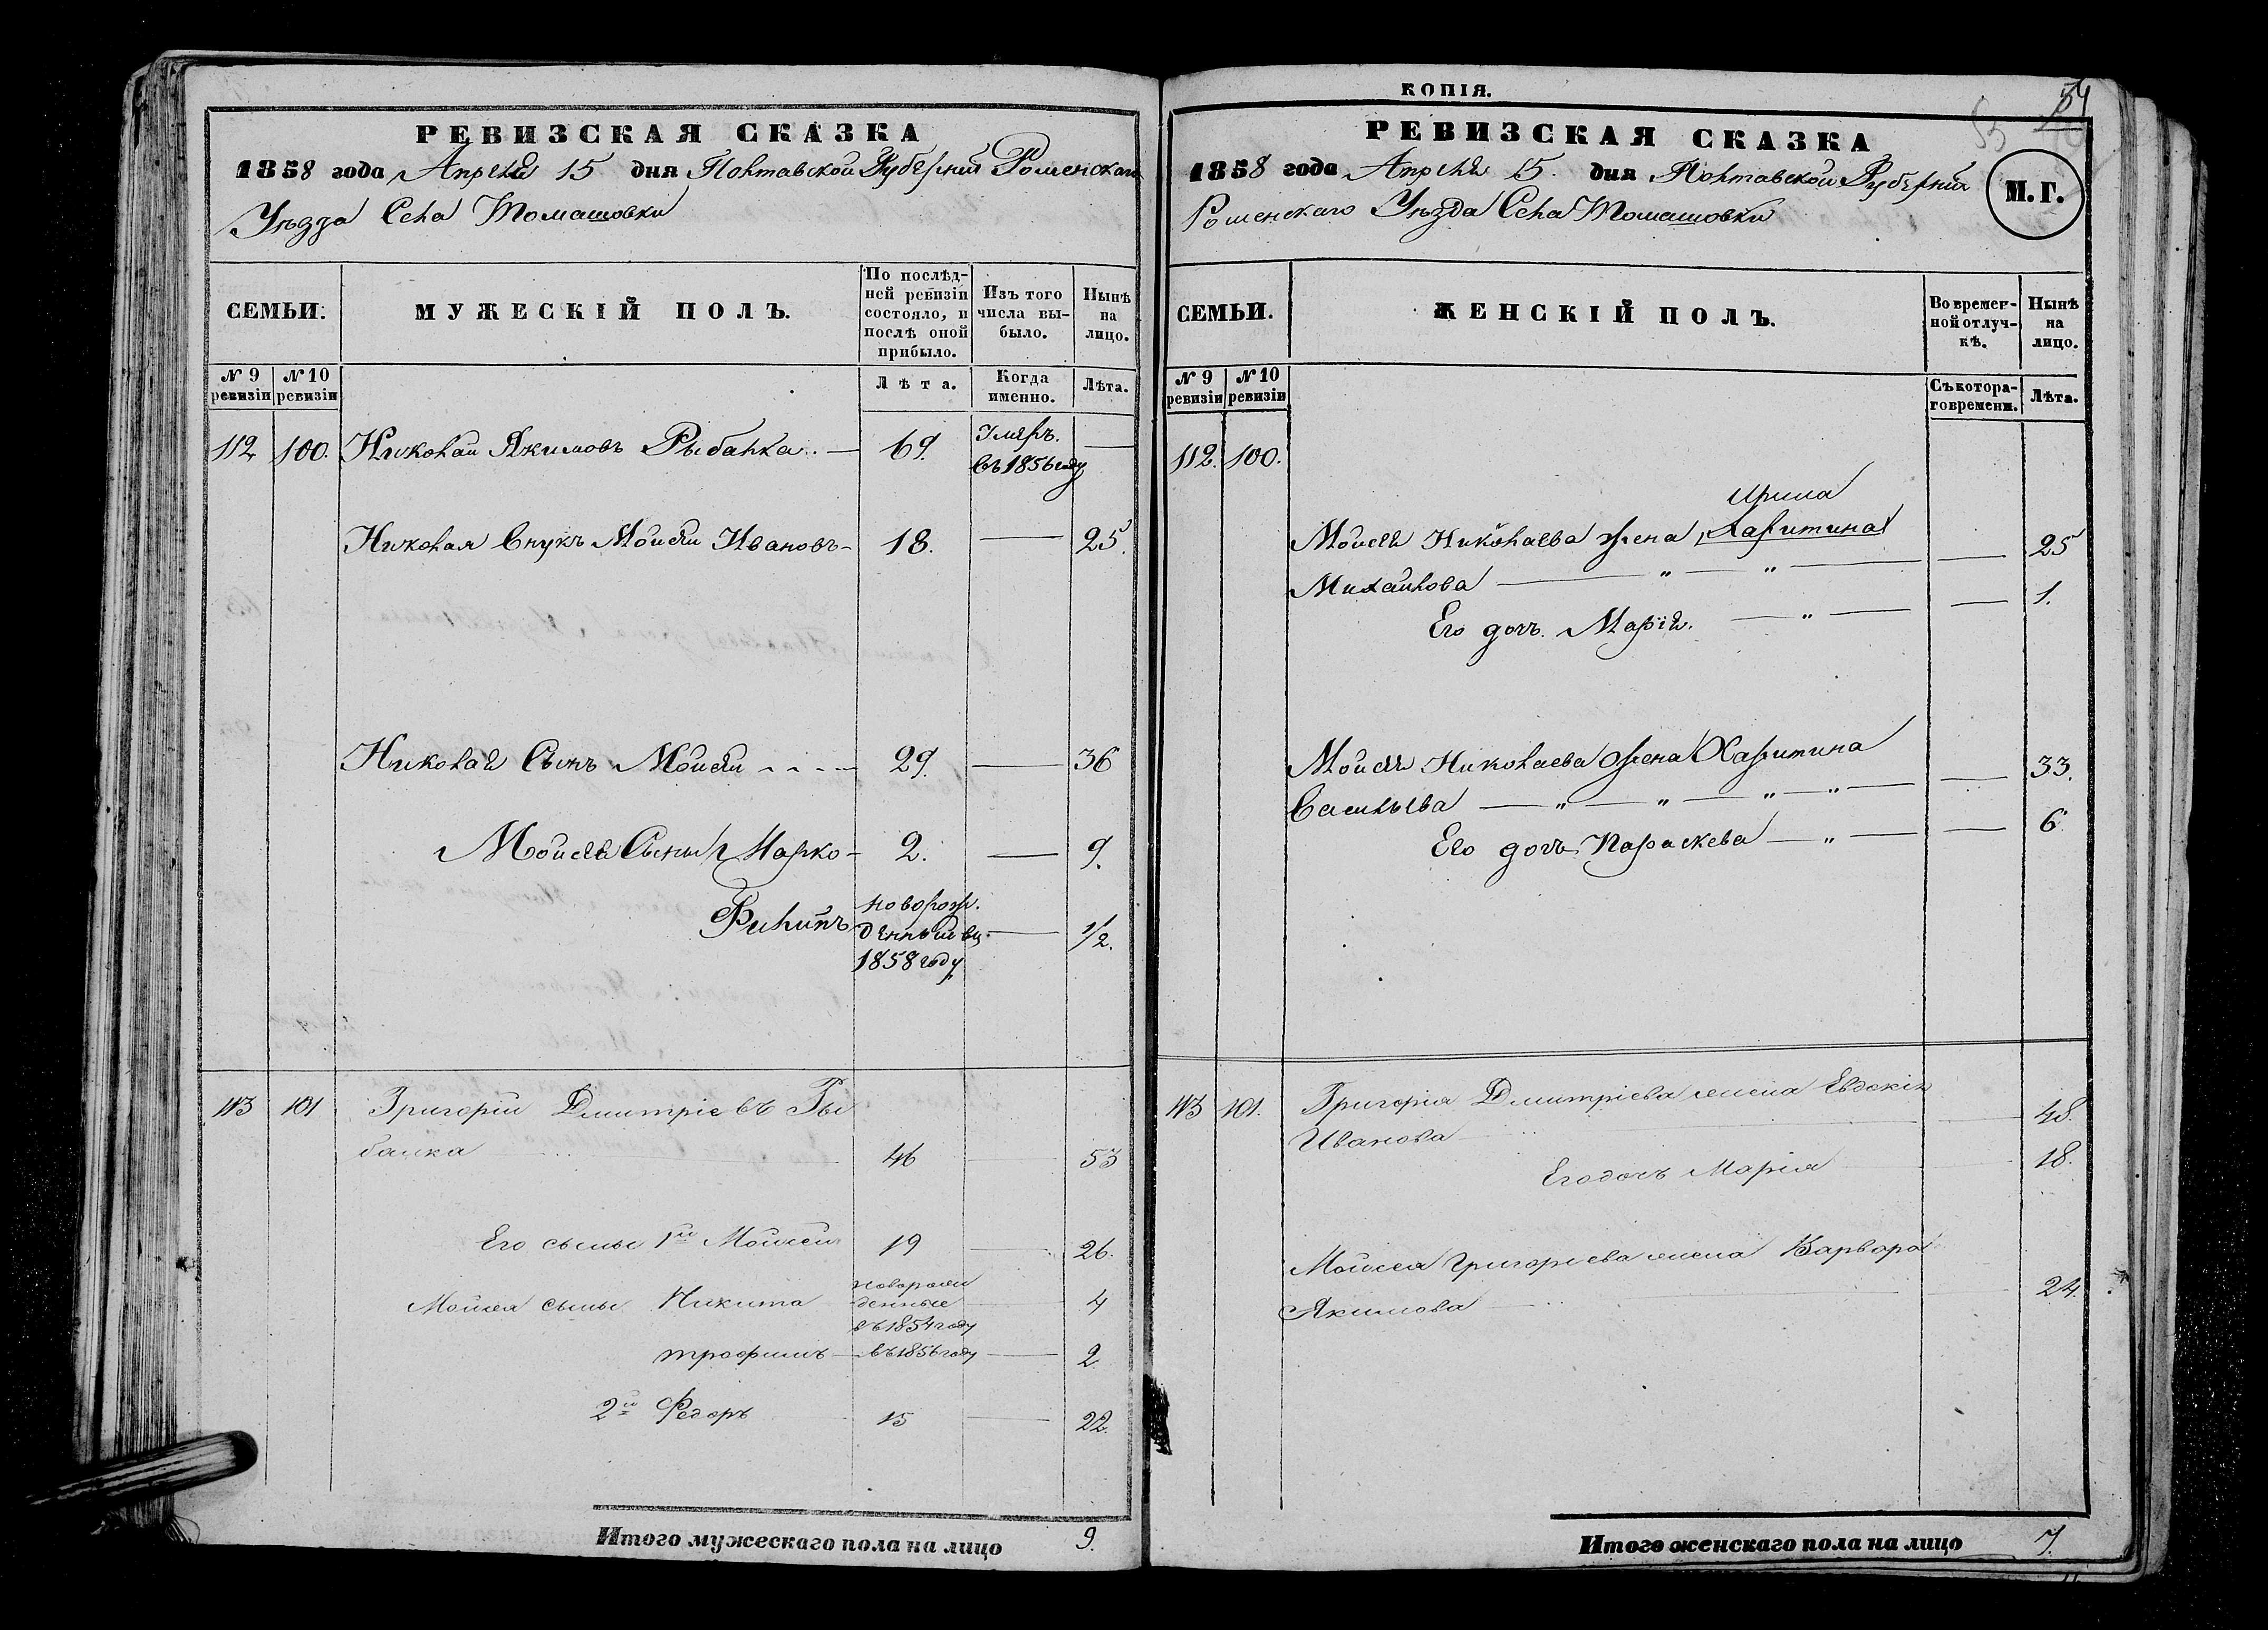 РЕВИЗСКАЯ СКАЗКА
1858 года Апреля 15 дня Полтавской Губерніи Роменскаго
Уѣзда Села Томашовки
СЕМЬИ.
МУЖЕСКІЙ ПОЛЪ.
По послѣд-
ней ревизіи
состояло, и
послѣ оной
прибыло.
Изъ того
числа вы-
было.
Нынѣ
на
лицо.
№ 9
ревизіи
№ 10
ревизіи
Лѣта.
Когда
именно.
Лѣта.
112 100. Николай Якимовъ Рыбалка 69.
Умеръ.
въ 1856 году
Николая Внукъ Мойсей Ивановъ 18. 25.
Николая Сынъ Мойсей 29. 36
Мойсея Сыны 1 Марко 2. 9.
Филипъ
новорож-
денный въ
1858 году
1/2.
113 101 Григорій Дмитріевъ Ры
балка 46 53
Его сыны 1й Мойсей 19 26.
Мойсея сыны Никита
новорож
денные
въ 1854 году
4
Трофимъ въ 1856 году 2
2й Федоръ 15 22.
Итого мужескаго пола на лицо 9.
КОПІЯ.
54
53
РЕВИЗСКАЯ СКАЗКА
1858 года Апреля 15. дня Полтавской Губерніи
Роменскаго Уѣзда Села Томашовки
М. Г.
СЕМЬИ.
ЖЕНСКІЙ ПОЛЪ.
Во времен-
ной отлуч-
кѣ.
Нынѣ
на
лицо.
№ 9
ревизіи
№ 10
ревизіи
Съ котора-
го времени.
Лѣта.
112. 100.
Ирина
Мойсея Николаева жена Харитина
Михайлова " " 25
Его дочь Марія. " 1.
Мойсея Николаева жена Харитина
Васильева " " " " 33.
Его дочь Параскева " 6
113 101. Григорія Дмитріева жена Евдокія
Иванова 48.
Его дочь Марія 18.
Мойсея Григорьева жена Варвара
Якимова 24.
Итого женскаго пола на лицо 7.